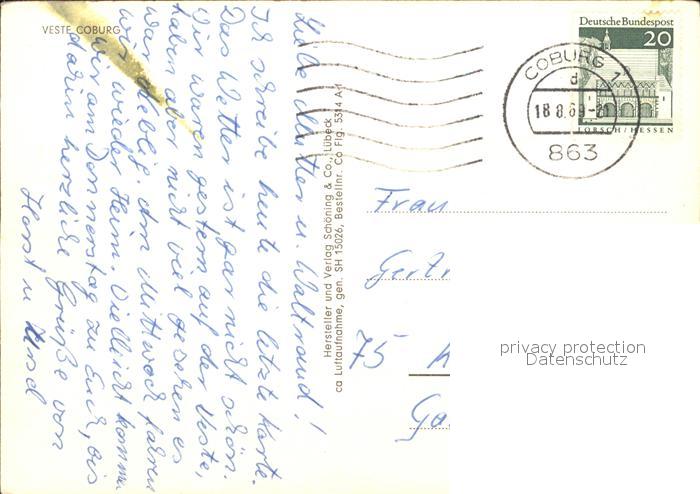 VESTE COBURG
Liebe Mutter u. Waltraud!
Ich schreibe heute die letzte Karte.
Das Wetter ist gar nicht schön.
Wir waren gestern auf der Veste,
haben aber nicht viel gesehen es
war neblig. Am Mittwoch fahren
wir wieder Heim. Vielleicht kommen
wir am Donnerstag zu Euch, bis
dahin herzliche Grüße von
Horst u Ursel
Hersteller und Verlag Schöning & Co., Lübeck
ca Luftaufnahme, gen. SH 15026, Bestellnr. Co Flg. 5314 A-1
Deutsche Bundespost
20
LORSCH/HESSEN
COBURG 1
d
18.8.69-21
863
Frau
Gertr
75 
Ga
privacy protection
Datenschutz